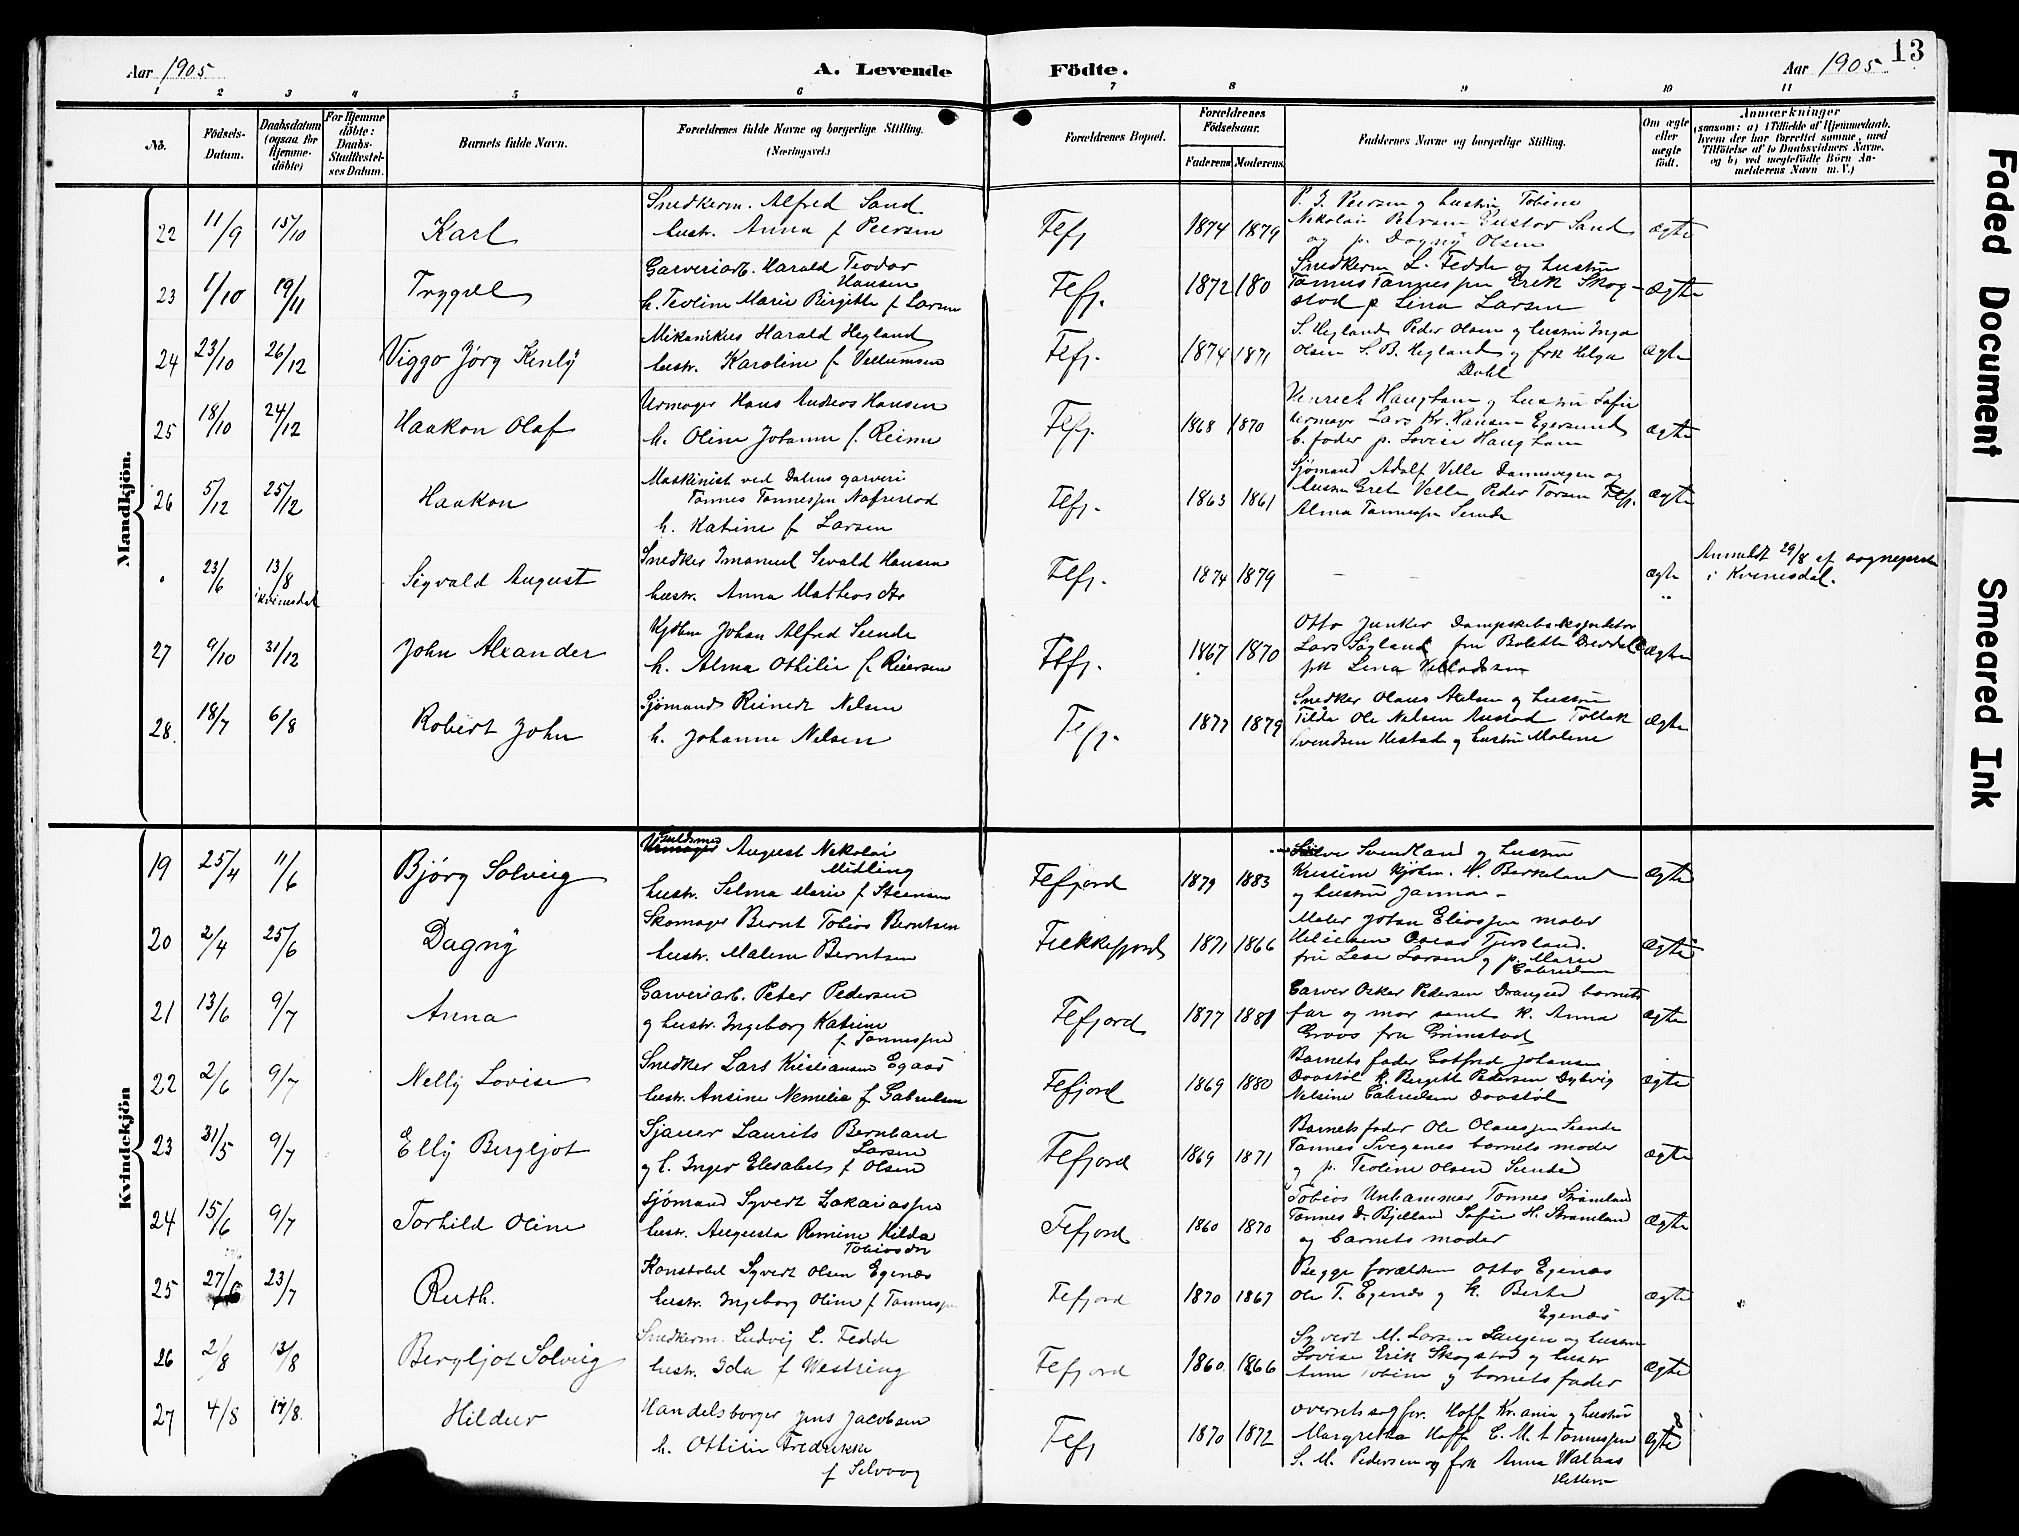 Aar 1905
A. Levende
Födte.
Aar 1905
13
1 2 3 4 5 6 7 8 9 10 11
No.
Födsels-Datum.
Daabsdatum (ogsaa for Hjemme-døbte)
For Hjemme døbte: Daabs-Stadfestel-ses Datum.
Barnets fulde Navn.
Forældrenes fulde Navne og borgerlige Stilling. (Næringsvei.)
Forældrenes Bopæl.
Forældrenes Födselsaar.
Faderens Moderens
Faddernes Navne og borgerlige Stilling.
Om ægte eller uægte født.
Anmærkninger
(saasom: a) i Tilfælde af Hjemmedaab,
hvem der har forrettet samme, med
Tilföielse af to Daabsvidners Navne,
og b) ved uægtefödte Börn An-
melderens Navn m. V.)
Mandkjön.
22 11/9 15/10 Karl
Snedkerm. Alfred Sand
hustr. Anna f Peersen
Flefj 1874 1879
P. J. Peersen og hustru Tobine
Nikolai Peersen Gustav Sand
og p. Dagny Olsen
ægte
23 1/10 19/11 Trygve
Garveriarb. Harald Teodor
Hansen
h. Teoline Marie Birgitte f Larsen
Flefj. 1872 180
Snedkerm L. Fedde og hustru
Tønnes Tønnessen Erik Skog-
stad p Lina Larsen
ægte
24 23/10 26/12 Viggo Jørg Kenly
Mekanikus Harald Hegland
hustr. Karoline f Vellumsen
Flefj. 1874 1871
S. Hegland Peder Olsen og hustru Inga
Olsen S. B. Hegland og frk Helga
Dahl
ægte
25 18/10 24/12 Haakon Olaf
Urmager Hans Andreas Hansen
h. Oline Johanne f. Reime
Flefj. 1868 1870
Henrich Haughom og hustru Sofie
Urmager Lars Kr. Hansen Egersund
b. fader p. Lovise Haughom
ægte
26 5/12 25/12 Haakon
Maskinist ved Dalens garveri
Tønnes Tønnessen Nafrestad
h. Katine f Larsen
Flefj. 1863 1861
Sjømand Adolf Velle Dannevegen og
hustru Grete Velle Peder Torsen Flefj.
Alma Tønnessen Sunde
ægte
23/6 13/8 i Kvinesdal Sigvald August
Snedker Imanuel Sevald Hansen
hustr. Anna Mathiosdtr
Flefj. 1874 1879
– – –
ægte
Anmeldt 29/8 af sogneprsten
i Kvinesdal.
27 9/10 31/12 John Alexander
Kjøbm Johan Alfred Sunde
h. Alma Othilie f. Reiersen
Flefj. 1867 1870
Otto Junker Dampskibsekspeditør
Lars Søyland fru Bolette
frk Lina
ægte
28. 18/7 6/8 Robert John
Sjømand Reinert Nelsen
h. Johanne Nelsen
Flefj. 1877 1879
Snedker Olaus Axelsen og hustru
Tilda Ole Nelsen Austad Tollak
Svendsen Hestad og hustru Malene
ægte
Kvindekjön
19 25/4 11/6 Bjørg Solveig
Guldsmed
Urmager August Nikolai
Midling
hustr. Selma Marie f Steensen
Flefjord 1879 1883
Svendland og hustru
Kristine Kjøbm. H. Birkeland
og hustru Janna
ægte
20 2/4 25/6 Dagny
Skomager Bernt Tobias Berntsen
hustr. Malene Berntsen
Flekkefjord 1871 1866
Maler Johan Eliassen maler
Tjersland.
fru Lese Larsen og p. Marie
Gabrielsen
ægte
21 13/6 9/7 Anna
Garveriarb. Peter Pedersen
og hustr. Ingeborg Katrine
f. Tønnessen
Flefjord 1877 1881
Garver Oskar Pedersen Drangeid barnets
far og mor samt k. Anna
Groos fra Grimstad
ægte
22 2/6 9/7 Nelly Lovise
Snedker Lars Kristiansen Egaas
hustr. Ansine Nemelia f Gabrielsen
Flefjord 1869 1880
Barnets fader Gotfred Johansen
Doostøl k. Bergitte Pedersen Dybvig
Nelsine Gabrielsen Doostøl
ægte
23 31/5 9/7 Elly Bergljot
Sjauer Laurits Bernhard
Larsen
og h. Inger Elisabeth f Olsen
Flefjord 1869 1871
Barnets fader Ole Olaussen Sunde
Tønnes Svegenes barnets moder
og p. Teoline Olsen Sunde
ægte
24 15/6 9/7 Torhild Oline
Sjømand Syvert Zakariassen
hustr. Augusta Remine Hilda
Tobiasdtr
Flefjord 1860 1870
Tobias Unhammer Tønnes Strømland
Tønnes D. Bjelland Sofie H. Strømland
og barnets moder
ægte
25 27/6 23/7 Ruth.
Konstabel Syvert Olsen Egenæs
hustr. Ingeborg Oline f Tønnessen
Flefjord 1870 1867
Begge forældren Otto Egenæs
Ole T. Egenæs og k. Berte
Egenæs
ægte
26 2/8 13/8 Bergljot Solveig
Snedkerm. Ludvig L. Fedde
hustr. Ida f Westring
Flefjord 1860 1866
Syvert M. Larsen Langen og hustru
Lovise Erik Skogstad og hustr
Anne Tobine og barnets fader
ægte
27 4/8 14/8. Hildur
Handelsborger Jens Jacobsen
h. Ottilie Fredrikke
f Selvaag
Flefj 1870 1872
Overretssagfør. Hoff Kr.ania og hustru
Margretha Hoff C. M. L Tønnessen
S. M. Pedersen og frk Anna Walaas
ægte
Faded Document
Smeared Ink